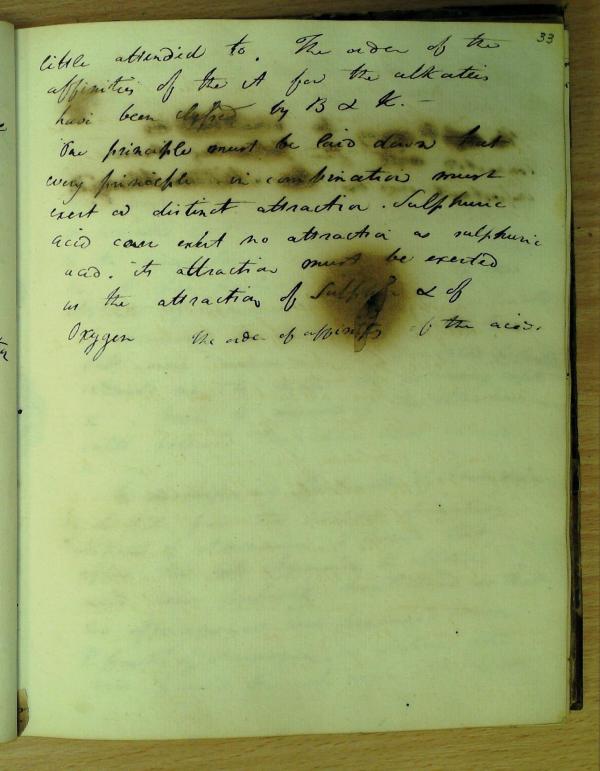 33
little attended to. The order of the
affinities of the A for the alkalies
have been classed by B & K. –
The principle must be laid down that
every principle in combination must
exert a distinct attraction. Sulphuric
acid can exert no attraction as sulphuric
acid. its attraction must be exerted
as the attraction of Sulphur & of
Oxygen the order of affinities of the acids.